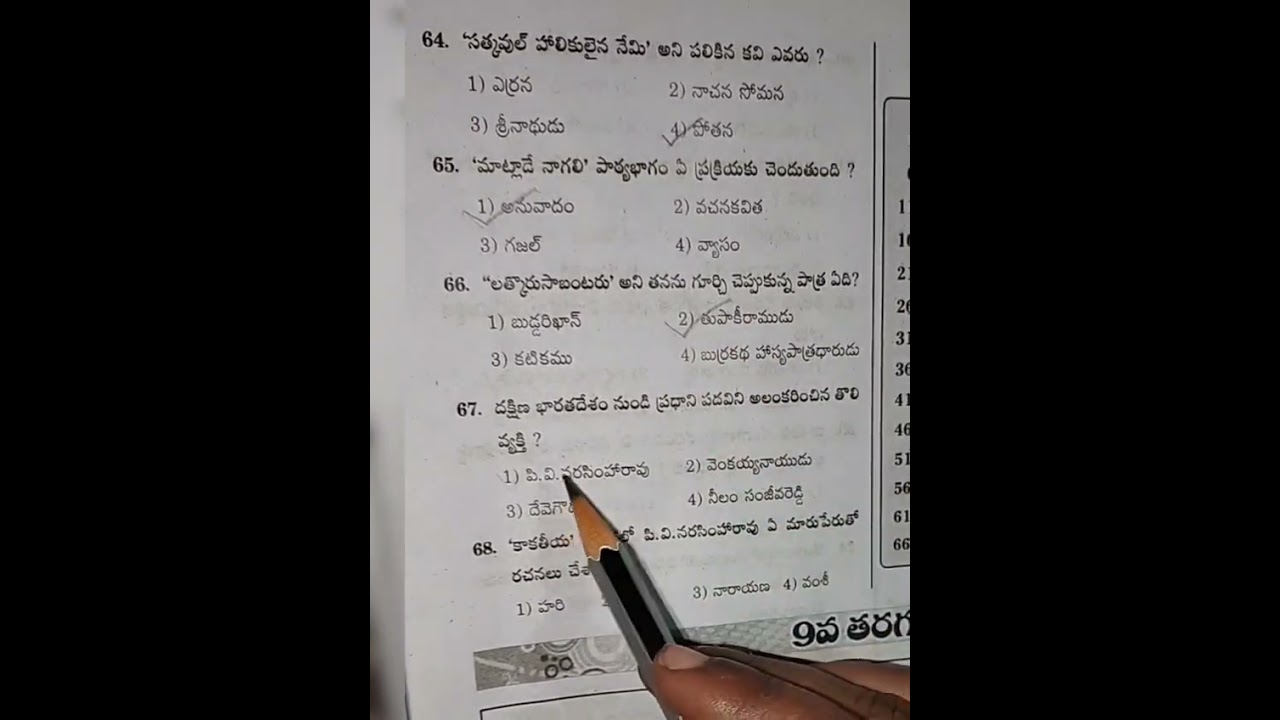 64. 'సత్కవుల్ హాలికులైన నేమి' అని పలికిన కవి ఎవరు ?
1) ఎర్రన 2) నాచన సోమన
3) శ్రీనాథుడు 4) పోతన
65. 'మాట్లాడే నాగలి' పాఠ్యభాగం ఏ ప్రక్రియకు చెందుతుంది ?
1) అనువాదం 2) వచనకవిత
3) గజల్ 4) వ్యాసం
66. "లత్కొరుసాబంటరు' అని తనను గూర్చి చెప్పుకున్న పాత్ర ఏది?
1) బుడ్డరిఖాన్ 2) తుపాకీరాముడు
3) కటికము 4) బుర్రకథ హాస్యపాత్రధారుడు
67. దక్షిణ భారతదేశం నుండి ప్రధాని పదవిని అలంకరించిన తొలి
వ్యక్తి ?
1) పి.వి.నరసింహారావు 2) వెంకయ్యనాయుడు
3) 4) నీలం సంజీవరెడ్డి
68. 'కాకతీయ' పి.వి.నరసింహారావు ఏ మారుపేరుతో
రచనలు
1) హరి 3) నారాయణ 4) వంశీ
9వ
11
16
21
26
31
36
41
46
51
56
61
66